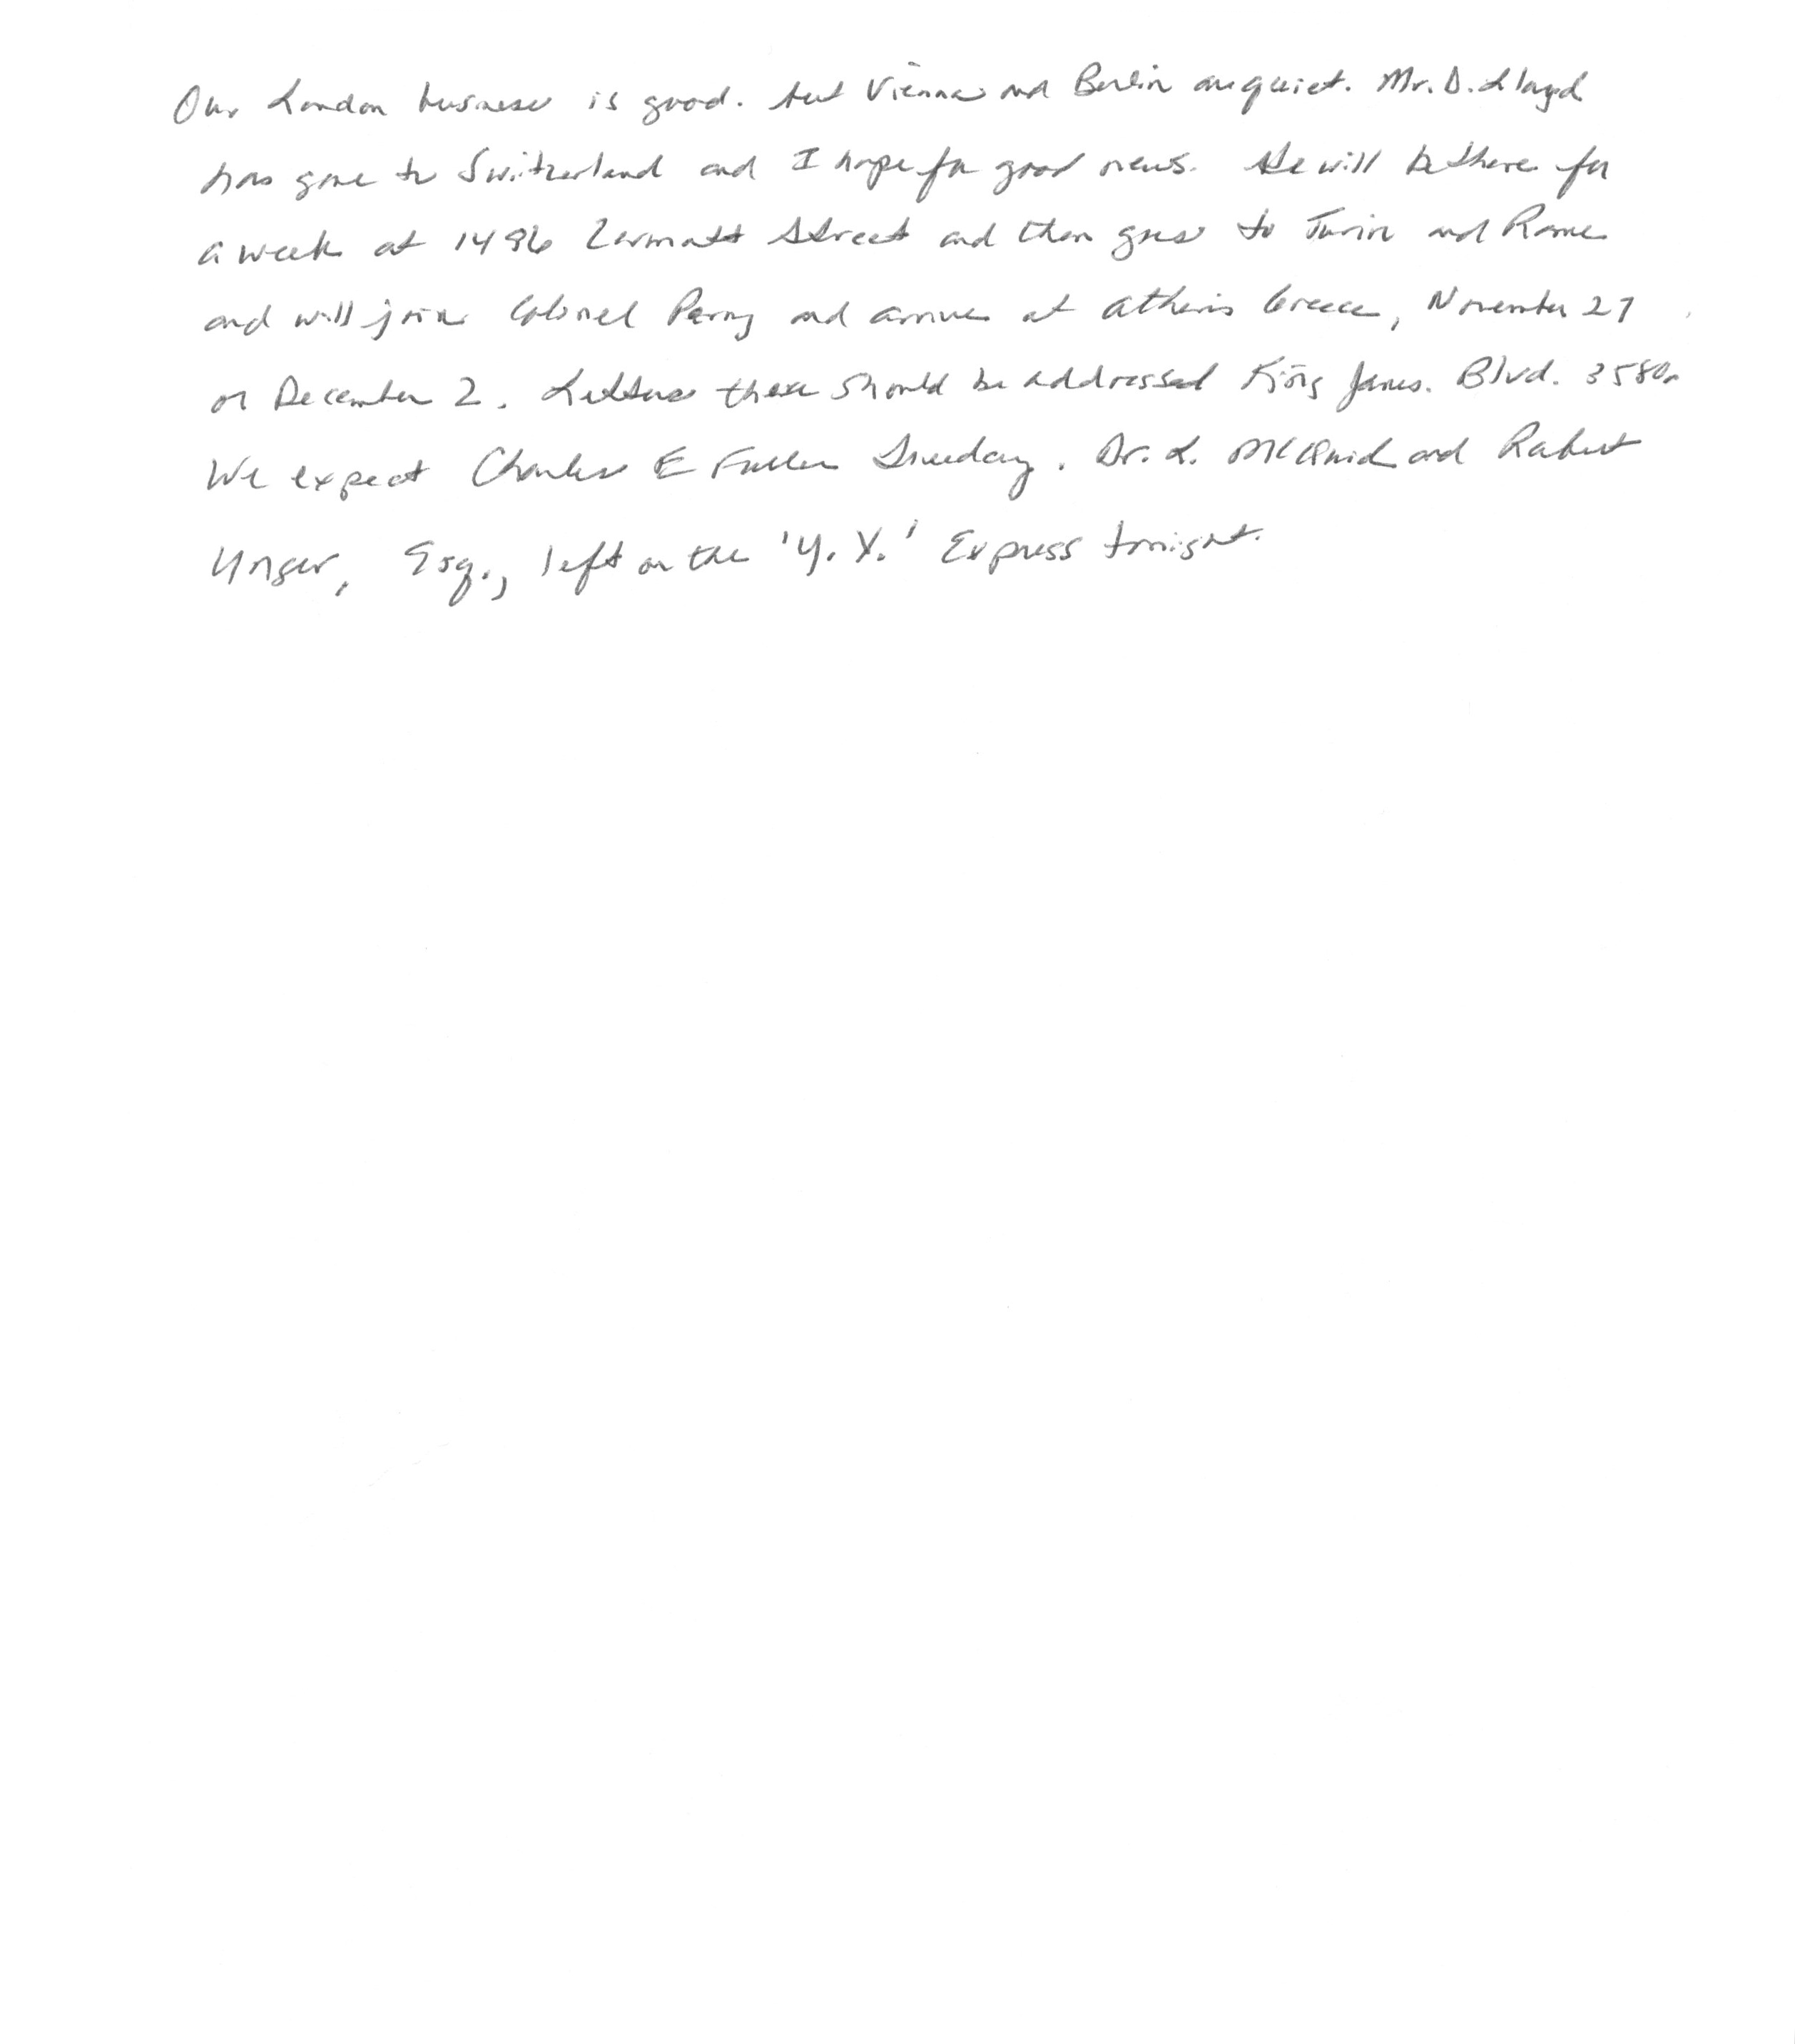 Our London business is good. but Vienna and Berlin are quiet. Mr. D. Lloyd
has gone to Switzerland and I hope for good news. He will be there for
a week at 1496 Zermatt Street and then goes to Turin and Rome
and will join Colonel Parry and arrive at Athens Greece, November 27
or December 2. Letters there should be addressed King James. Blvd. 3580.
We expect Charles E Fuller Tuesday. Dr. L. McQuaid and Robert
Unger, Esq., left on the 'Y. X.' Express tonight.